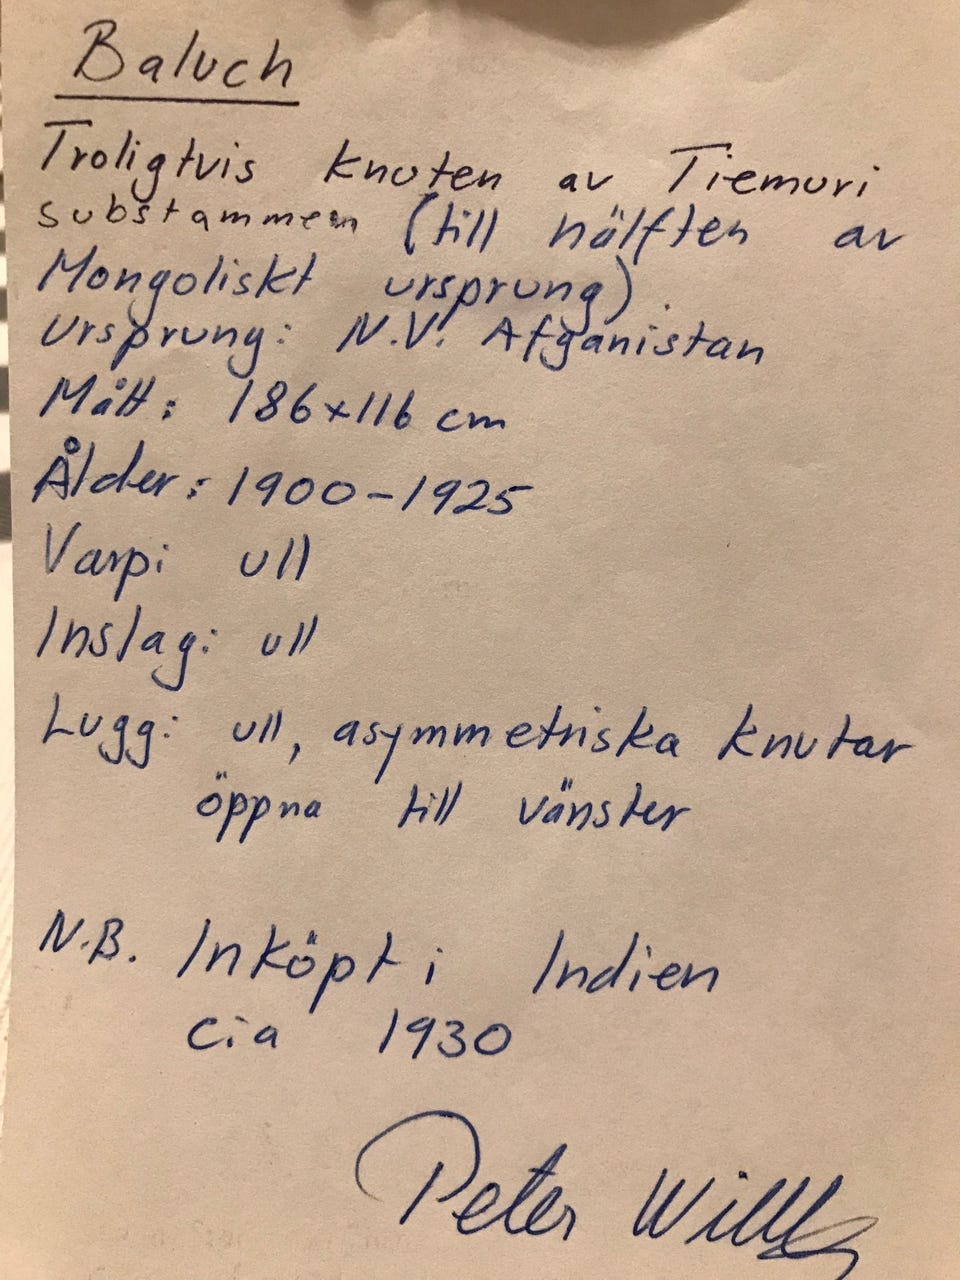 Baluch
Troligtvis knuten av Tiemuri
substammen (till hälften av
Mongoliskt ursprung).
Ursprung: N.V. Afganistan
Mått: 186x116 cm
Ålder: 1900-1925
Varp: ull
Inslag: ull
Lugg: ull, asymmetriska knutar
öppna till vänster
N.B. Inköpt i Indien
cia 1930
Peter